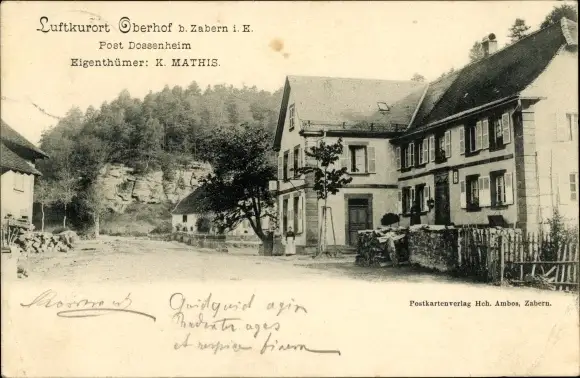 Luftkurort Oberhof b. Zabern i. E.
Post Dossenheim
Eigenthümer: K. MATHIS.
Postkartenverlag Hch. Ambos, Zabern.
Quidquid agis
Prudenter agas
et respice finem